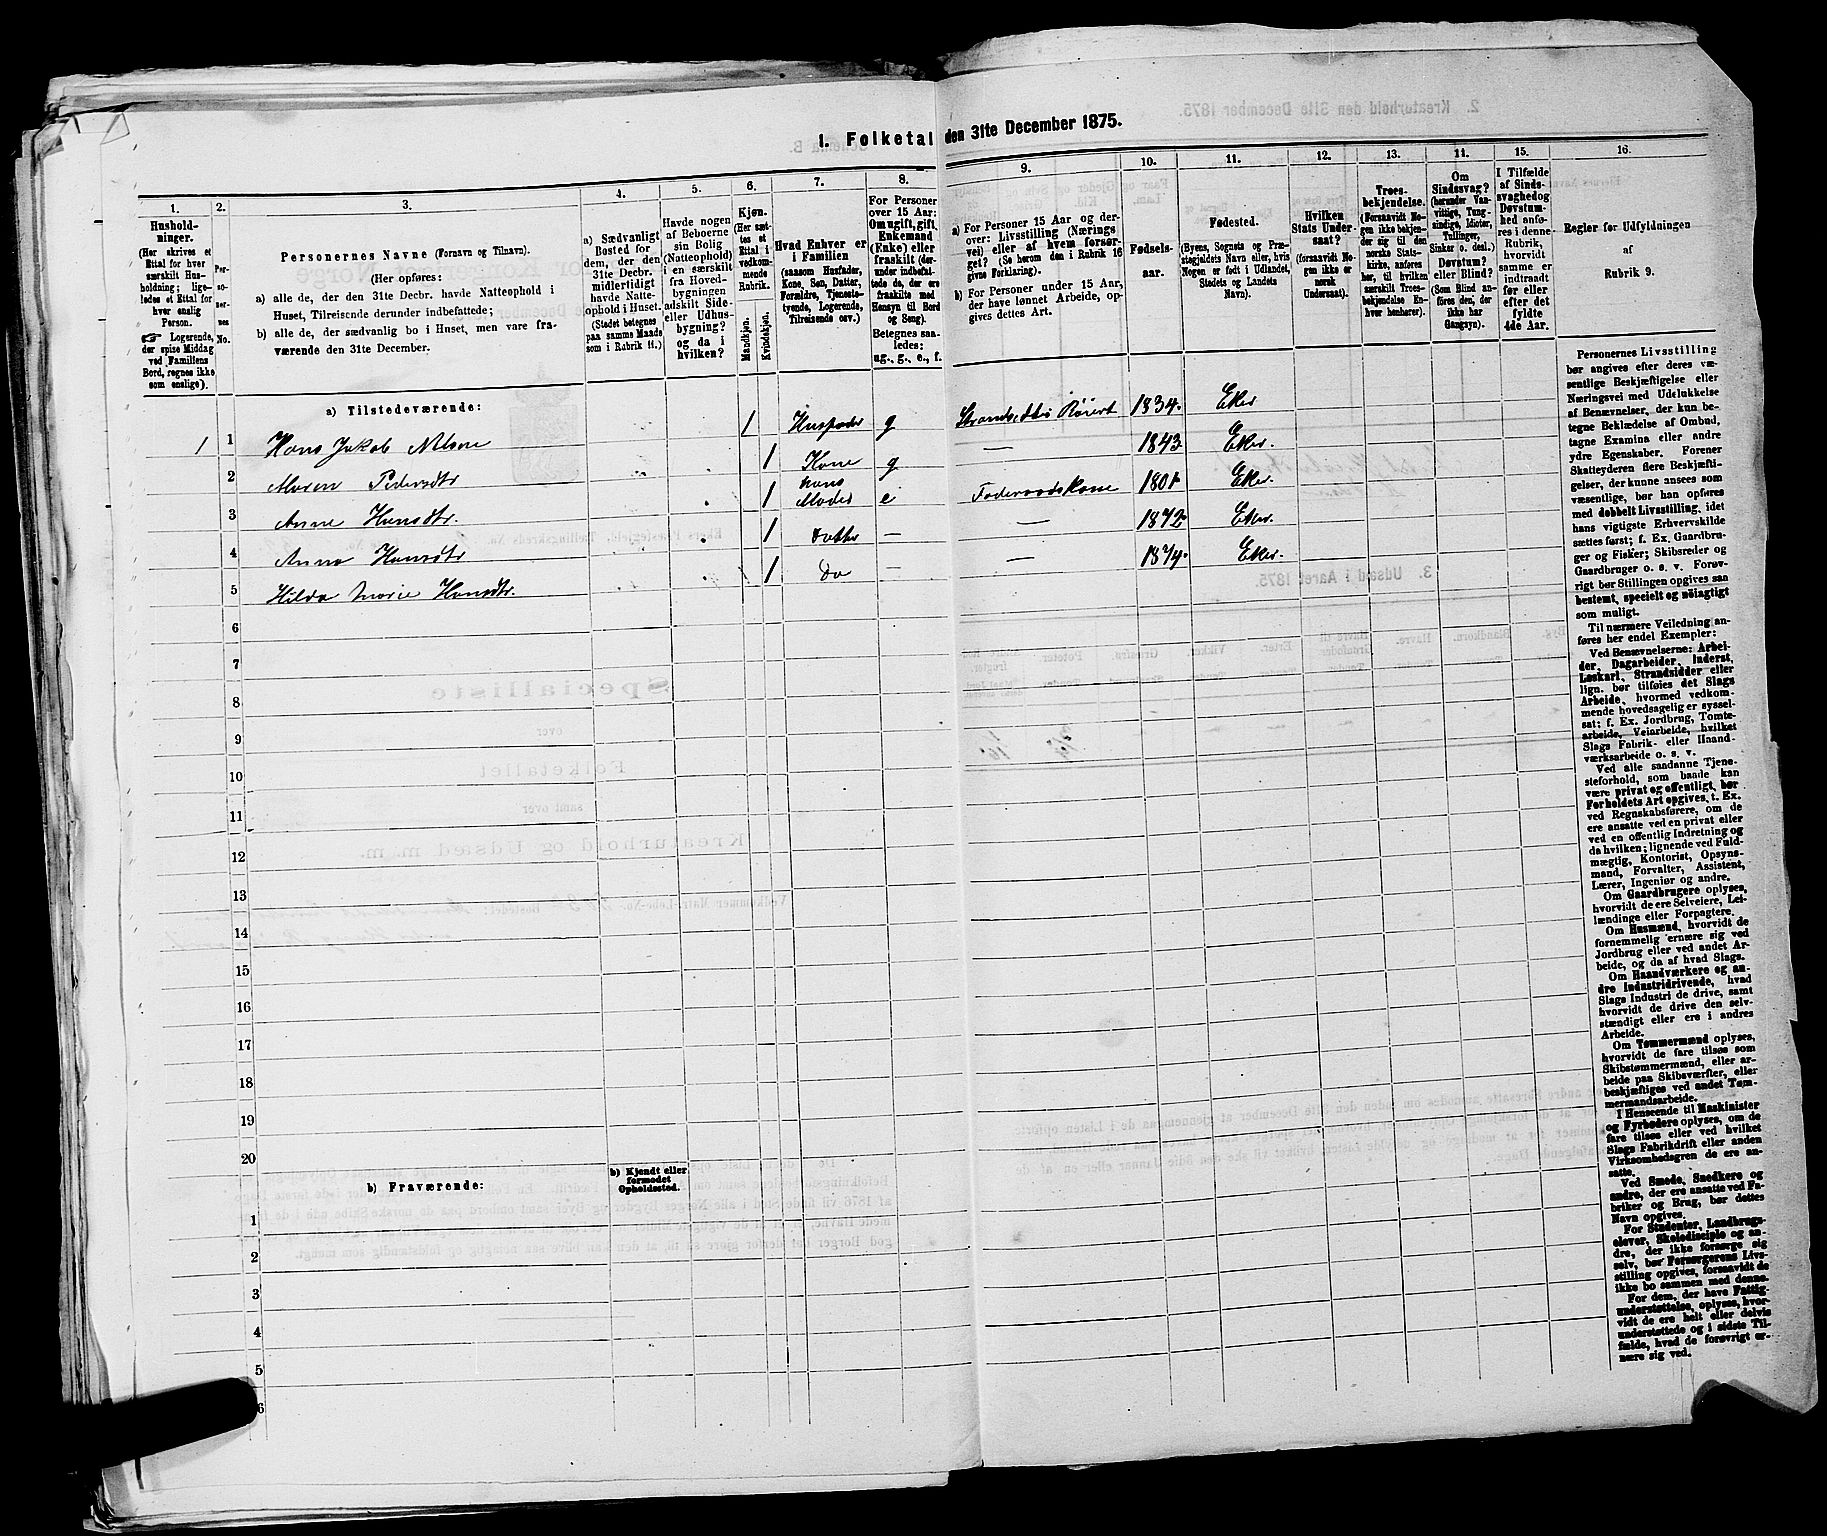 1. Folketal den 31te December 1875.
1.
2.
3.
4.
5.
6.
7.
8.
9.
10.
11.
12.
13.
14.
15.
16.
Husholdninger.
(Her skrives et Ettal for hver særskilt Husholdning; ligeledes et Ettal for hver enslig Person.
☞ Logerende, der spise Middag ved Familiens Bord, regnes ikke som enslige).
Personernes No.
Personernes Navne (Fornavn og Tilnavn).
(Her opføres:
a) alle de, der den 31te Decbr. havde Natteophold i Huset, Tilreisende derunder indbefattede;
b) alle de, der sædvanlig bo i Huset, men vare fraværende den 31te December.
a) Sædvanligt Bosted for dem, der den 31te Decbr. midlertidigt havde Natteophold i Huset.
(Stedet betegnes paa samme Maade som i Rubrik 11.)
Havde nogen af Beboerne sin Bolig (Natteophold) i en særskilt fra Hovedbygningen adskilt Side- eller Udhusbygning? og da i hvilken?
Kjøn.
(Her sættes et Ettal i vedkommende Rubrik.
Mandkjøn.
Kvindekjøn.
Hvad Enhver er i Familien
(saasom Husfader, Kone, Søn, Datter, Forældre, Tjenestetyende, Logerende, Tilreisende osv.)
For Personer over 15 Aar: Om ugift, gift, Enkemand (Enke) eller fraskilt (derunder indbefattede de, der ere fraskilte med Hensyn til Bord og Seng).
Betegnes saaledes: ug., g., e., f.
a) For Personer 15 Aar og derover: Livsstilling (Nærings vei) eller af hvem forsørget? (Se herom den i Rubrik 16 givne Forklaring).
b) For Personer under 15 Aar, der have lønnet Arbeide, opgives dettes Art.
Fødselsaar.
Fødested.
(Byens, Sognets og Præstegjeldets Navn eller, hvis Nogen er født i Udlandet, Stedets og Landets Navn).
Hvilken Stats Undersaat?
(forsaavidt Nogen ikke er norsk Undersaat).
Troesbekjendelse.
(Forsaavidt Nogen ikke bekjender sig til den norske Statskirke, anføres her, til hvilken særskilt Troesbekjendelse Enhver henhører).
Om Sindssvag? (herunder Vanvittige, Tungsindige, Idioter, Tullinger, Sinker o. desl.) Døvstum? eller Blind? (Som Blind anføres den, der ikke har Gangsyn).
I Tilfælde af Sindssvaghed og Døvstumhed anføres i denne Rubrik, hvorvidt samme er indtraadt før eller efter det fyldte 4de Aar.
Regler for Udfyldningen
af
Rubrik 9.
a) Tilstedeværende:
1 1 Hans Jakob Nilsne 1 Husfader g Strandsidder Røiert 1834. Eker
2 Maren Pedersdtr 1 Kone g — 1843. Eker.
3 Anne Hansdtr. 1 hans Moder e Foderaadskone 1801 Eker.
4 Anna Hansdtr 1 datter — — 1872 Eker.
5 Hilda Marie Hansdtr. 1 do — — 1874. Eker.
6
7
8
9
10
11
12
13
14
15
16
17
18
19
20
b) Fraværende:
b) Kjendt eller formodet Opholdssted.
1
2
3
4
5
6
Personernes Livsstilling
bør angives efter deres væ-
sentlige Beskjæftigelse eller
Næringsvei med Udelukkelse
af Benævnelser, der kun be-
tegne Beklædelse af Ombud,
tagne Examina eller andre
ydre Egenskaber. Forener
Skatteyderen flere Beskjæfti-
gelser, der kunne ansees som
væsentlige, bør han opføres
med dobbelt Livsstilling, idet
hans vigtigste Erhvervskilde
sættes først; f. Ex. Gaardbru-
ger og Fisker; Skibsreder og
Gaardbruger o. s. v. Forøv-
rigt bør Stillingen opgives saa
bestemt, specielt og nøiagtigt
som muligt.
Til nærmere Veiledning an-
føres her endel Exempler:
Ved Benævnelserne: Arbei-
der, Dagarbeider, Inderst,
Løskarl, Strandsidder eller
lign. bør tilføies det Slags
Arbeide, hvormed vedkom-
mende hovedsagelig er syssel-
sat; f. Ex. Jordbrug, Tomte-
arbeide, Veiarbeide, hvilket
Slags Fabrik- eller Haand-
værksarbeide o. s. v.
Ved alle saadanne Tjene-
steforhold, som baade kan
være privat og offentligt, bør
Forholdets Art opgives, t. Ex.
ved Regnskabsførere, om de
ere ansatte ved en privat eller
ved en offentlig Indretning og
da hvilken; lignende ved Fuld-
mægtig, Kontorist, Opsyns-
mand, Forvalter, Assistent,
Lærer, Ingeniør og andre.
Om Gaardbrugere oplyses,
hvorvidt de ere Selveiere, Lei-
lændinge eller Forpagtere.
Om Husmænd, hvorvidt de
fornemmelig ernære sig ved
Jordbrug eller ved andet Ar-
beide, og da af hvad Slags.
Om Haandværkere og an-
dre Industridrivende, hvad
Slags Industri de drive, samt
hvorvidt de drive den selv-
stændigt eller ere i andres
Arbeide.
Om Tømmermænd oplyses,
hvorvidt de fare tilsøs som
Skibstømmermænd, eller ar-
beide paa Skibsværfter, eller
beskjæftiges ved andet Tøm-
mermandsarbeide.
I Henseende til Maskinister
og Fyrbødere oplyses, om de
fare tilsøs eller ved hvilket
Slags Fabrikdrift eller anden
Virksomhedsgren de ere an-
satte.
Ved Smede, Snedkere og
andre, der ere ansatte ved Fa-
briker og Brug, bør dettes
Navn opgives.
For Studenter, Landbrugs-
elever, Skoledisciple og an-
dre, der ikke forsørge sig
selv, bør Forsørgerens Livs-
stilling opgives, forsaavidt de
ikke bo sammen med denne.
For dem, der have Fattig-
understøttelse, oplyses, hvor-
vidt de ere helt eller delvis
understøttede og i sidste Til-
fælde, hvad de forøvrigt er-
nære sig ved.